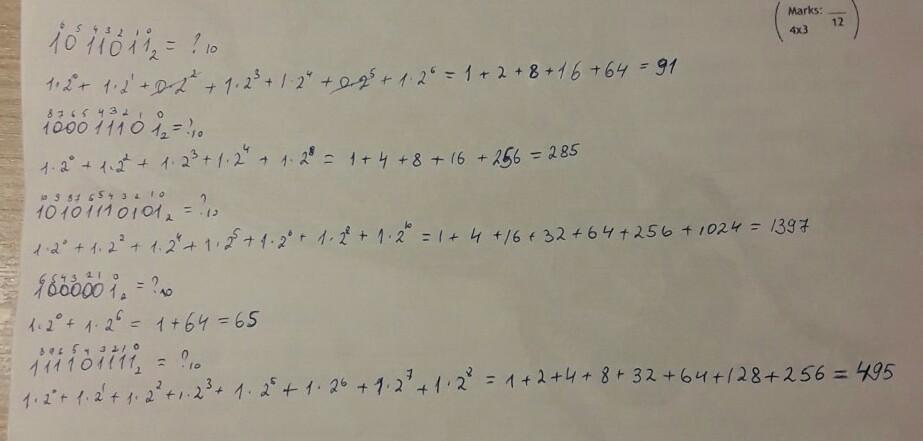 (Marks: __ / 12
4x3)
6 5 4 3 2 1 0
1011011₂ = ?₁₀
1·2⁰ + 1·2¹ + 0·2² + 1·2³ + 1·2⁴ + 0·2⁵ + 1·2⁶ = 1 + 2 + 8 + 16 + 64 = 91
8 7 6 5 4 3 2 1 0
100011101₂ = ?₁₀
1·2⁰ + 1·2² + 1·2³ + 1·2⁴ + 1·2⁸ = 1 + 4 + 8 + 16 + 256 = 285
10 9 8 7 6 5 4 3 2 1 0
10101110101₂ = ?₁₀
1·2⁰ + 1·2² + 1·2⁴ + 1·2⁵ + 1·2⁶ + 1·2⁸ + 1·2¹⁰ = 1 + 4 + 16 + 32 + 64 + 256 + 1024 = 1397
6 5 4 3 2 1 0
1000001₂ = ?₁₀
1·2⁰ + 1·2⁶ = 1 + 64 = 65
8 7 6 5 4 3 2 1 0
111101111₂ = ?₁₀
1·2⁰ + 1·2¹ + 1·2² + 1·2³ + 1·2⁵ + 1·2⁶ + 1·2⁷ + 1·2⁸ = 1 + 2 + 4 + 8 + 32 + 64 + 128 + 256 = 495